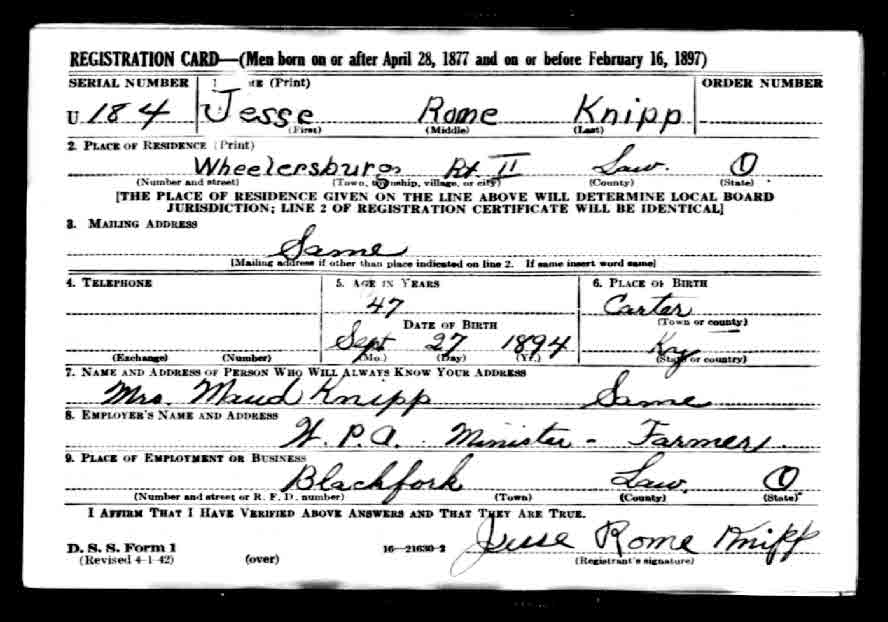 REGISTRATION CARD—(Men born on or after April 28, 1877 and on or before February 16, 1897)
SERIAL NUMBER 1 ME (Print) ORDER NUMBER
U 184 Jesse Rome Knipp
(First) (Middle) (Last)
2. PLACE OF RESIDENCE (Print)
Wheelersburg Rt. II Law. O
(Number and street) (Town, township, village, or city) (County) (State)
[THE PLACE OF RESIDENCE GIVEN ON THE LINE ABOVE WILL DETERMINE LOCAL BOARD
JURISDICTION; LINE 2 OF REGISTRATION CERTIFICATE WILL BE IDENTICAL]
3. MAILING ADDRESS
Same
[Mailing address if other than place indicated on line 2. If same insert word same]
4. TELEPHONE 5. AGE IN YEARS 6. PLACE OF BIRTH
47 Carter
DATE OF BIRTH (Town or county)
Sept 27 1894 Ky
(Exchange) (Number) (Mo.) (Day) (Yr.) (State or country)
7. NAME AND ADDRESS OF PERSON WHO WILL ALWAYS KNOW YOUR ADDRESS
Mrs. Maud Knipp Same
8. EMPLOYER'S NAME AND ADDRESS
W. P. A. Minister - Farmer.
9. PLACE OF EMPLOYMENT OR BUSINESS
Blackfork Law. O
(Number and street or R. F. D. number) (Town) (County) (State)
I AFFIRM THAT I HAVE VERIFIED ABOVE ANSWERS AND THAT THEY ARE TRUE.
D. S. S. Form 1 16—21630-2 Jesse Rome Knipp
(Revised 4-1-42) (over) (Registrant's signature)